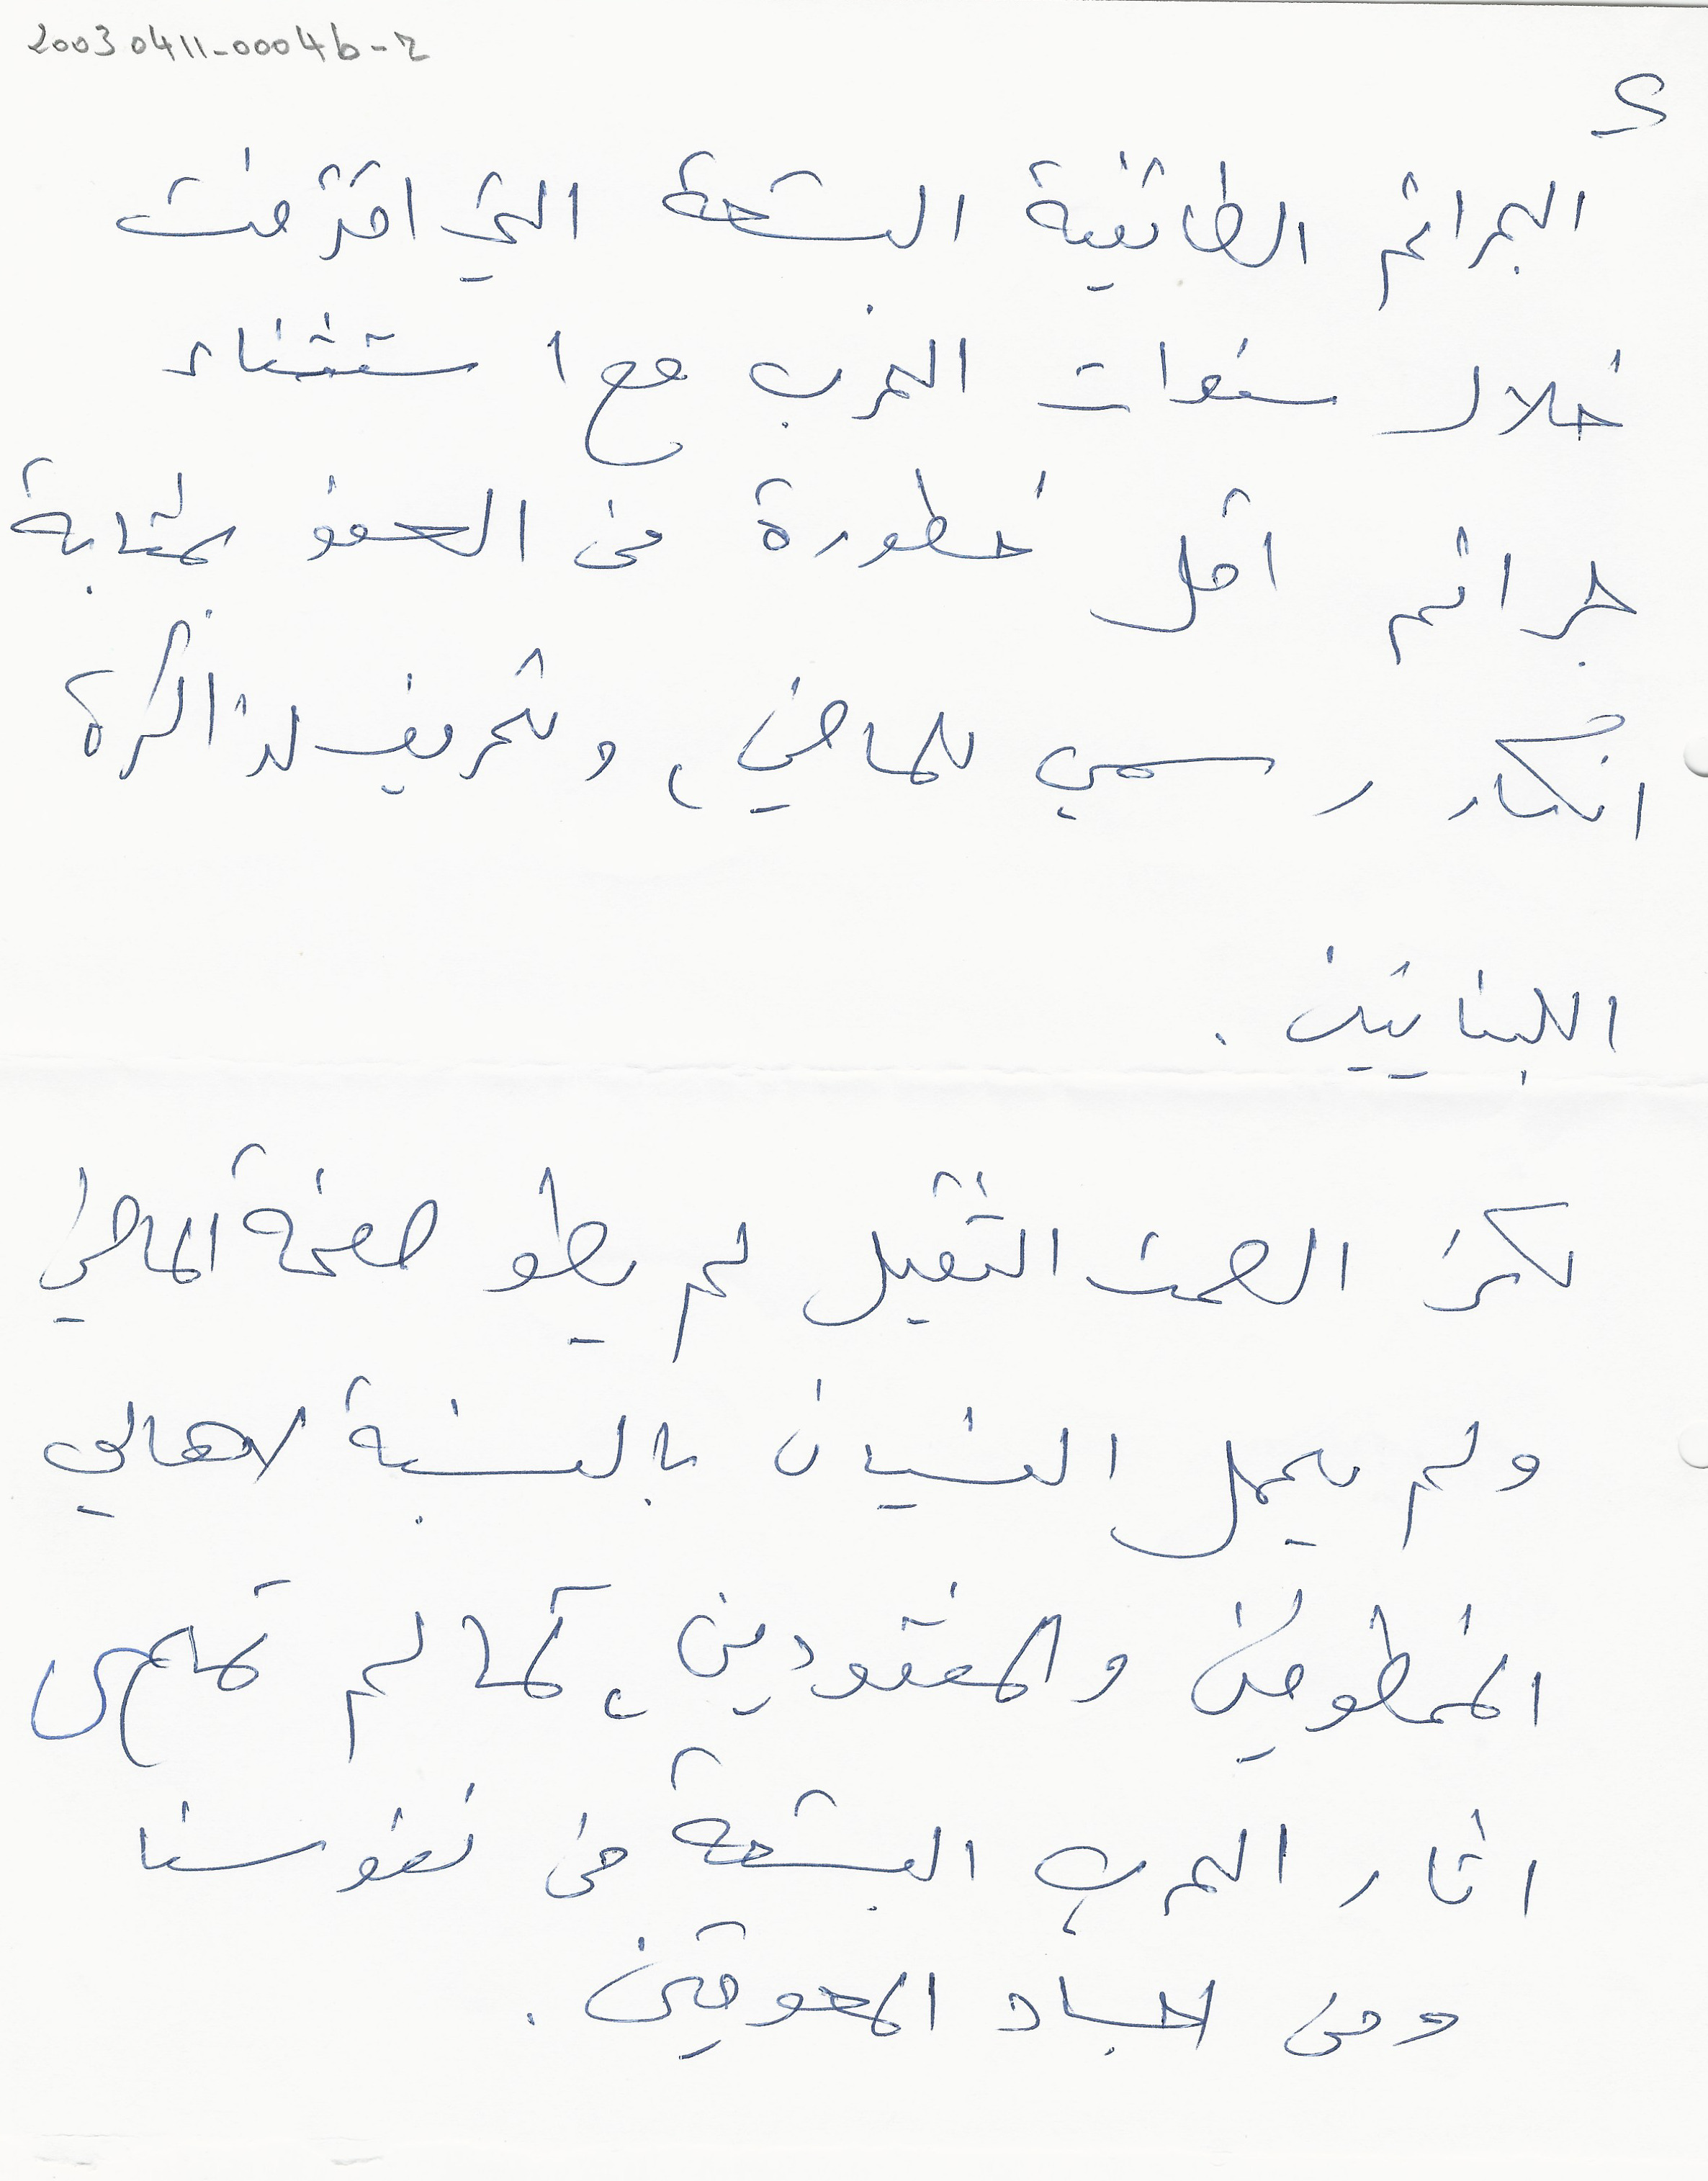 20030411-0004b-2
ي
الجرائم الطائفية البشعة التي اقترفت
خلال سنوات الحرب مع استثناء
جرائم اقل خطورة من العفو بمثابة
انكار رسمي للماضي، وتحريف لذاكرة
اللبنانيين .
لكن الصمت الثقيل لم يطو صفحة الماضي
ولم يحل النسيان بالنسبة لاهالي
المخطوفين والمفقودين، كما لم تمحى
اثار الحرب البشعة من نفوسنا
ومن اجساد المعوقين .